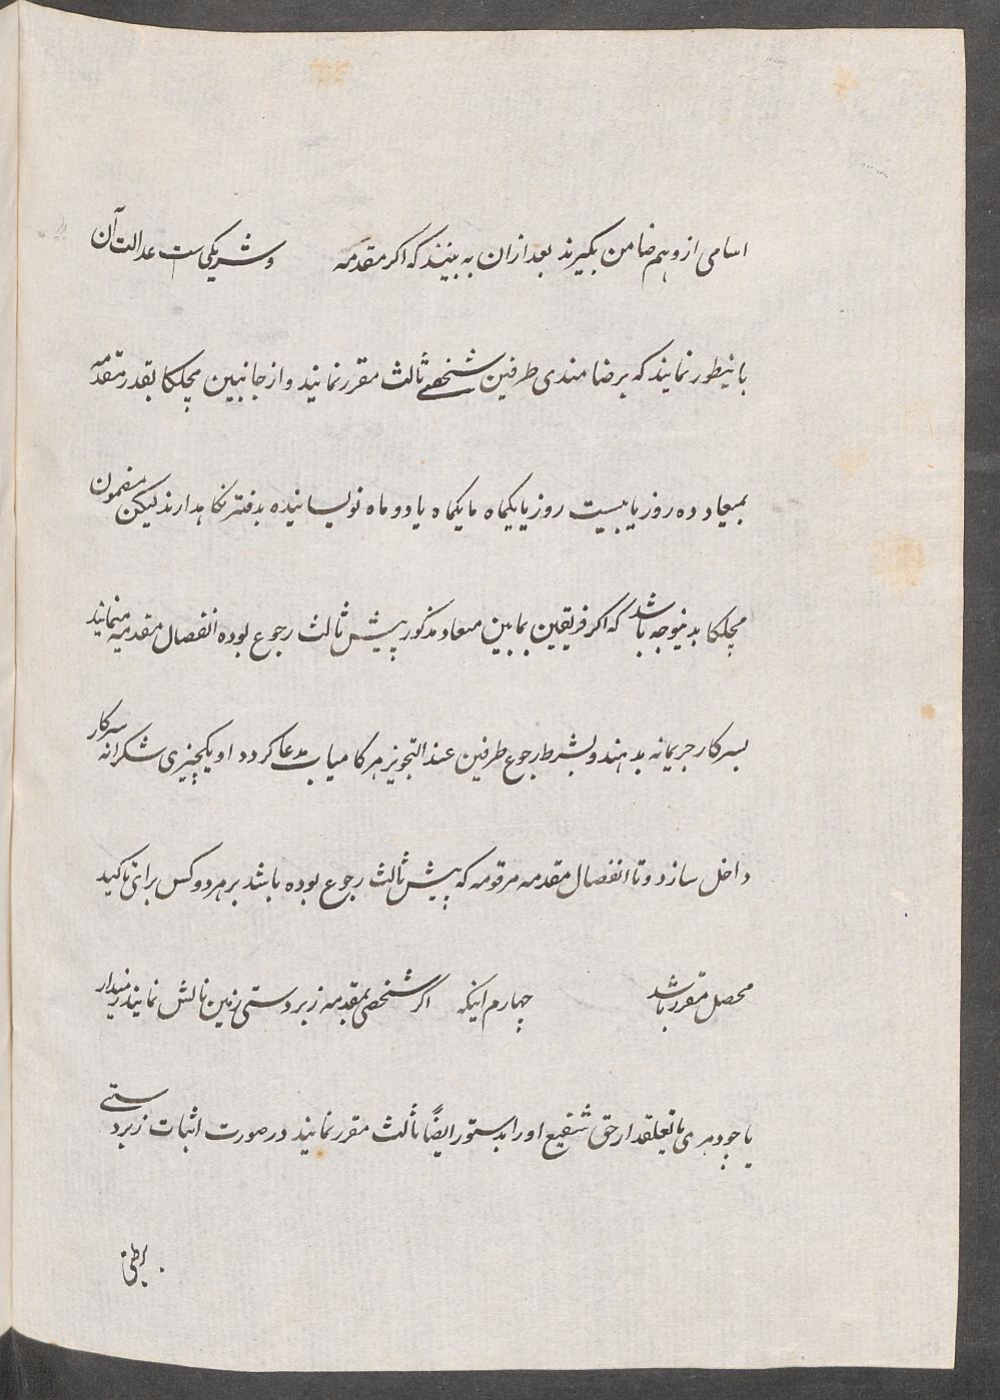 اسامی ازو هم ضامن بگیرند بعد ازان به بینند که اگر مقدمه و شریکی ست عدالت آن
باینطور نمایند که برضامندی طرفین شخصے ثالث مقرر نمایند و از جانبین مچلکا بقدر مقدمه
بمیعاد ده روز یا بیست روز یا یکماه یا دو ماه نویسانیده بدفتر نگاهدارند لیکن مضمون
مچلکا بدینوجه باشد که اگر فریقین بمابین میعاد مذکور پیش ثالث رجوع بوده انفصال مقدمه ننمایند
بسرکار جریمانه بدهند و بشرط رجوع طرفین عند التجویز هر کامیاب مدعا گردد او یکچیزی شکرانه سرکار
داخل سازد و تا انفصال مقدمه مرقومه که پیش ثالث رجوع بوده باشد بر هر دو کس برای تاکید
محصل مقرر باشد چهارم اینکه اگر شخصی بمقدمه زبردستی زمین نالش نماید زمیندار
یا چودهری یا تعلقدار حق شفیع او را بدستور ایضاً ثالث مقرر نمایند در صورت اثبات زبردستے